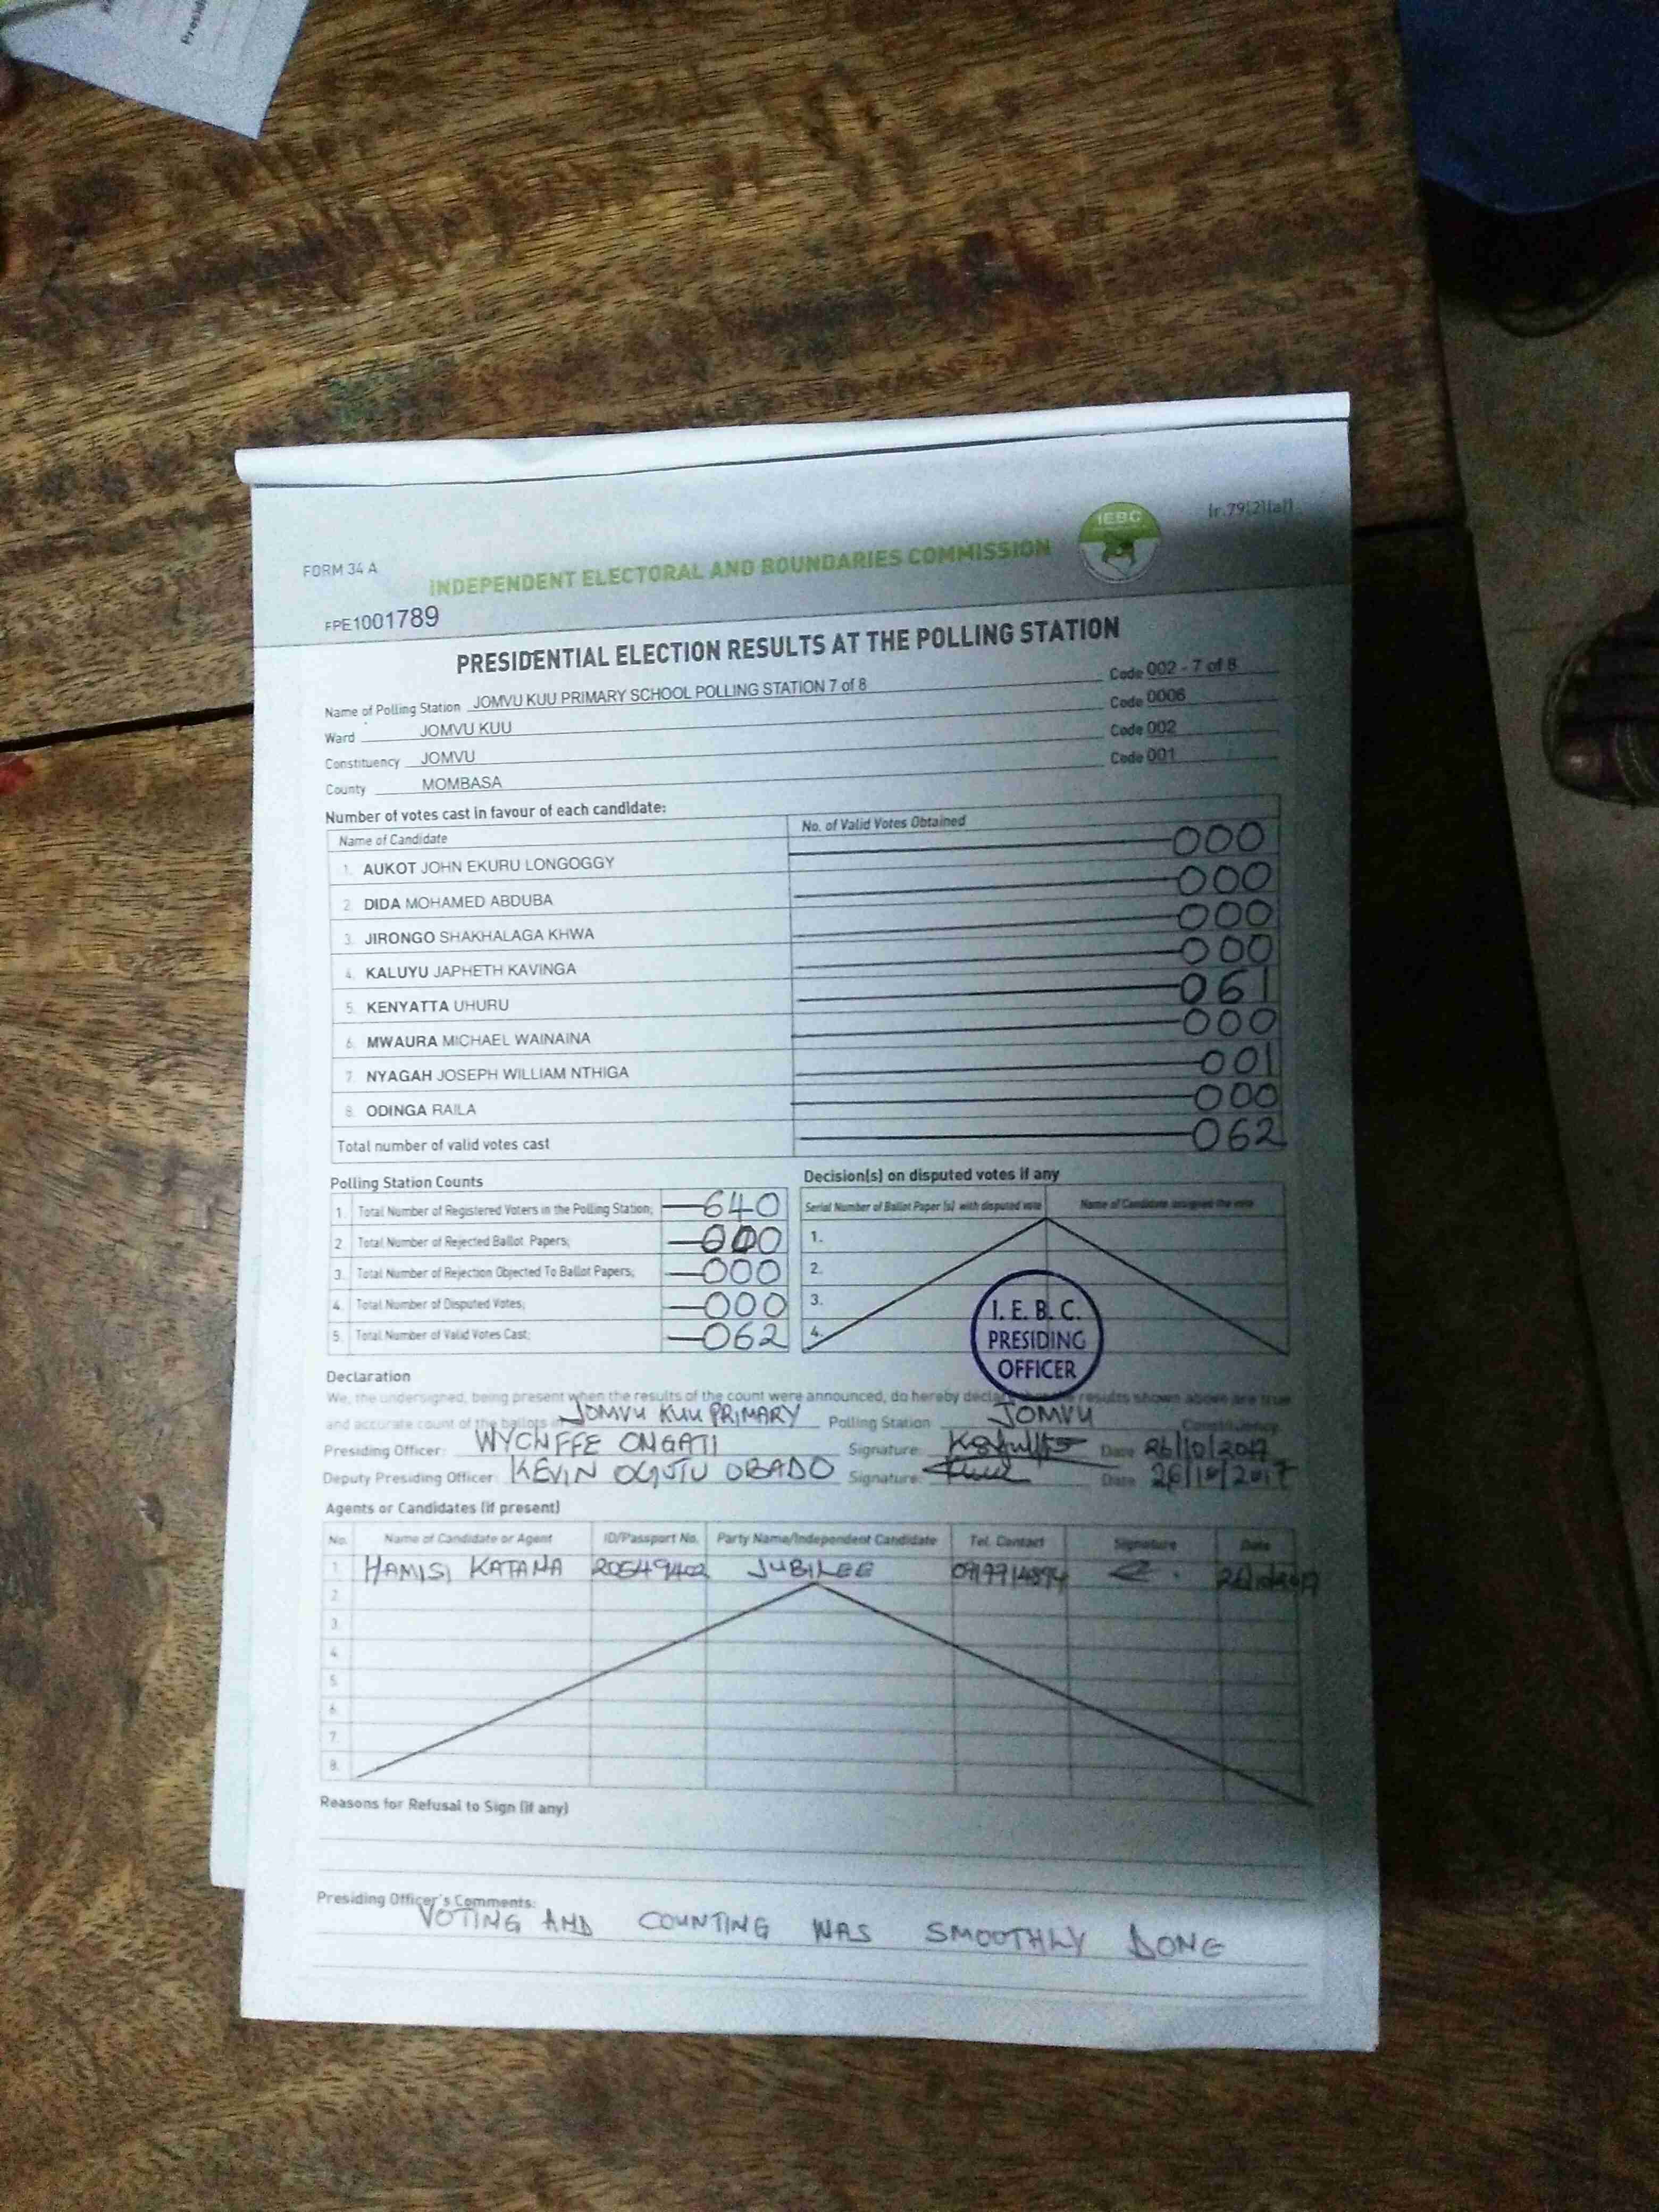 Presid
FORM 34 A
INDEPENDENT ELECTORAL AND BOUNDARIES COMMISSION
IEBC
(r.79(2)(a))
FPE1001789
PRESIDENTIAL ELECTION RESULTS AT THE POLLING STATION
Name of Polling Station JOMVU KUU PRIMARY SCHOOL POLLING STATION 7 of 8 Code 002 - 7 of 8
Ward JOMVU KUU Code 0006
Constituency JOMVU Code 002
County MOMBASA Code 001
Number of votes cast in favour of each candidate:
Name of Candidate No. of Valid Votes Obtained
1. AUKOT JOHN EKURU LONGOGGY 000
2. DIDA MOHAMED ABDUBA 000
3. JIRONGO SHAKHALAGA KHWA 000
4. KALUYU JAPHETH KAVINGA 000
5. KENYATTA UHURU 061
6. MWAURA MICHAEL WAINAINA 000
7. NYAGAH JOSEPH WILLIAM NTHIGA 001
8. ODINGA RAILA 000
Total number of valid votes cast 062
Polling Station Counts
1. Total Number of Registered Voters in the Polling Station; 640
2. Total Number of Rejected Ballot Papers; 000
3. Total Number of Rejection Objected To Ballot Papers; 000
4. Total Number of Disputed Votes; 000
5. Total Number of Valid Votes Cast; 062
Decision(s) on disputed votes if any
Serial Number of Ballot Paper (s) with disputed vote Name of Candidate assigned the vote
1.
2.
3.
4.
I. E. B. C.
PRESIDING
OFFICER
Declaration
We, the undersigned, being present when the results of the count were announced, do hereby declare that the results shown above are true
and accurate count of the ballots in JOMVU KUU PRIMARY Polling Station JOMVU Constituency
Presiding Officer: WYCLIFFE ONGATI Signature: Date 26/10/2017
Deputy Presiding Officer: KEVIN OGUTU OBADO Signature: Date 26/10/2017
Agents or Candidates (if present)
No. Name of Candidate or Agent ID/Passport No. Party Name/Independent Candidate Tel. Contact Signature Date
1. HAMISI KATANA 20549402 JUBILEE
2.
3.
4.
5.
6.
7.
8.
Reasons for Refusal to Sign (if any)
Presiding Officer's Comments:
VOTING AND COUNTING WAS SMOOTHLY DONE